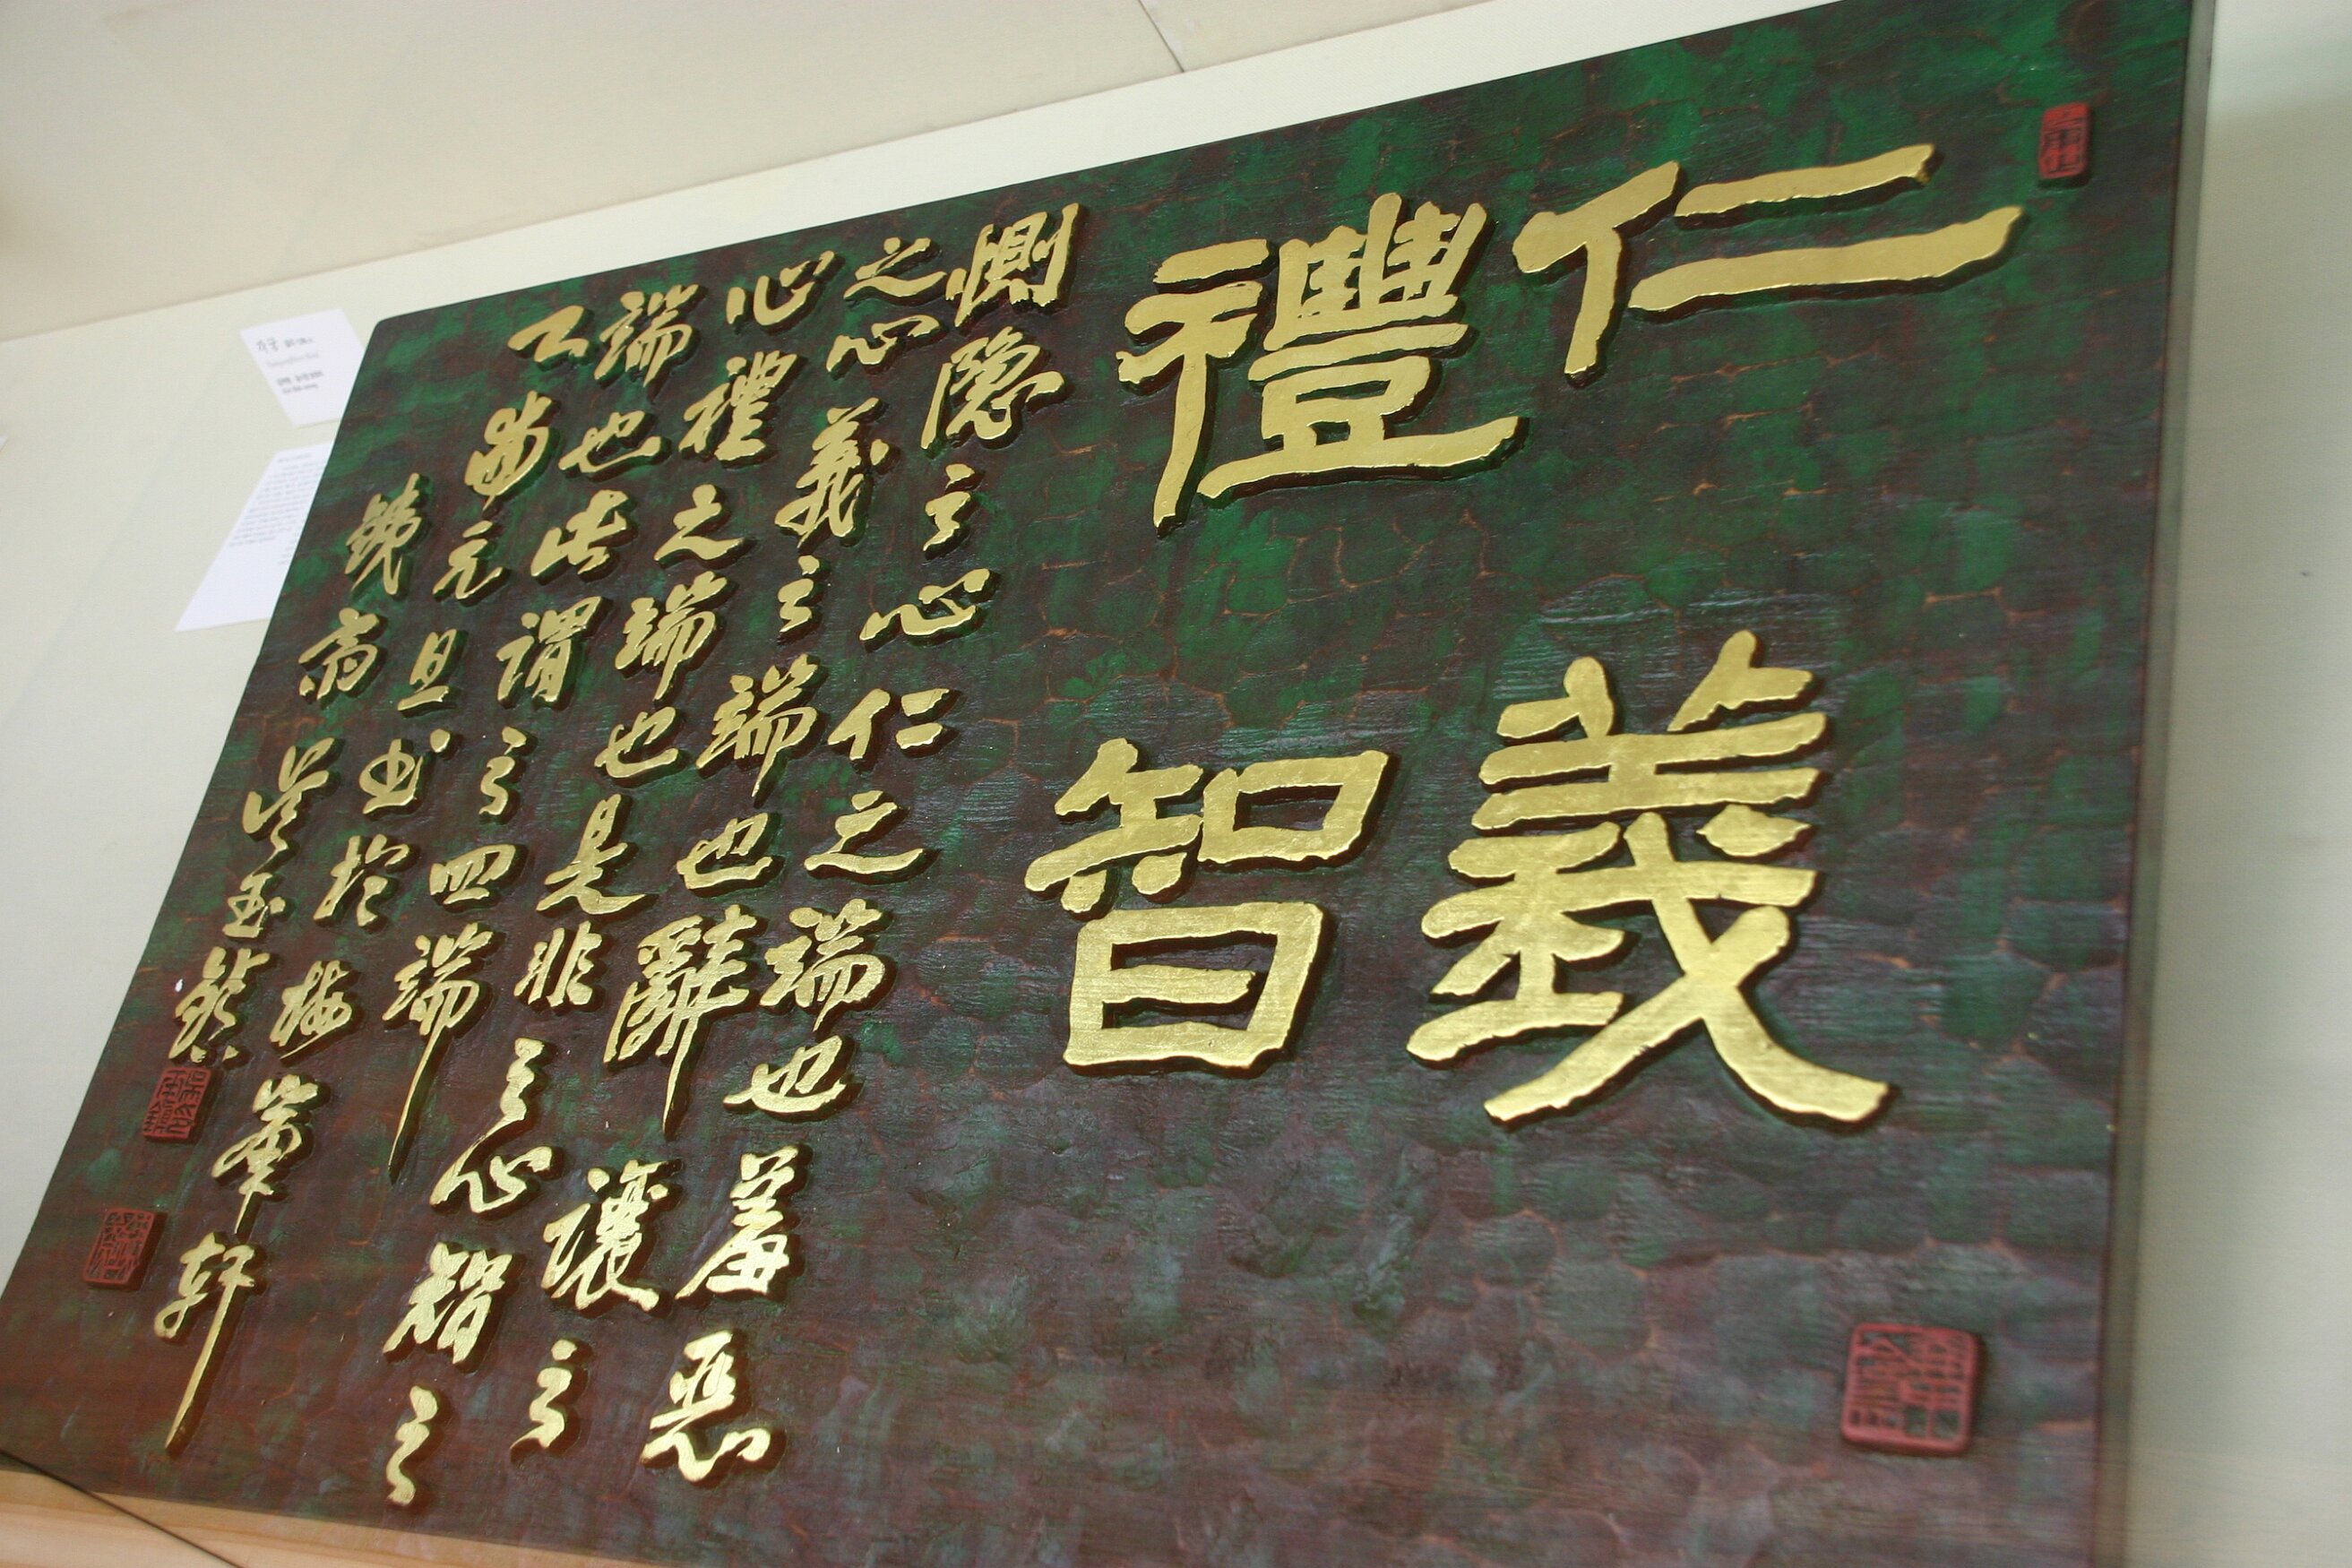 仁義
禮智
惻隱之心仁之端也羞惡
之心義之端也辭讓之
心禮之端也是非之心智之
端也此謂之四端
乙酉元旦書於梅華軒
鐵齋吳玉鎭